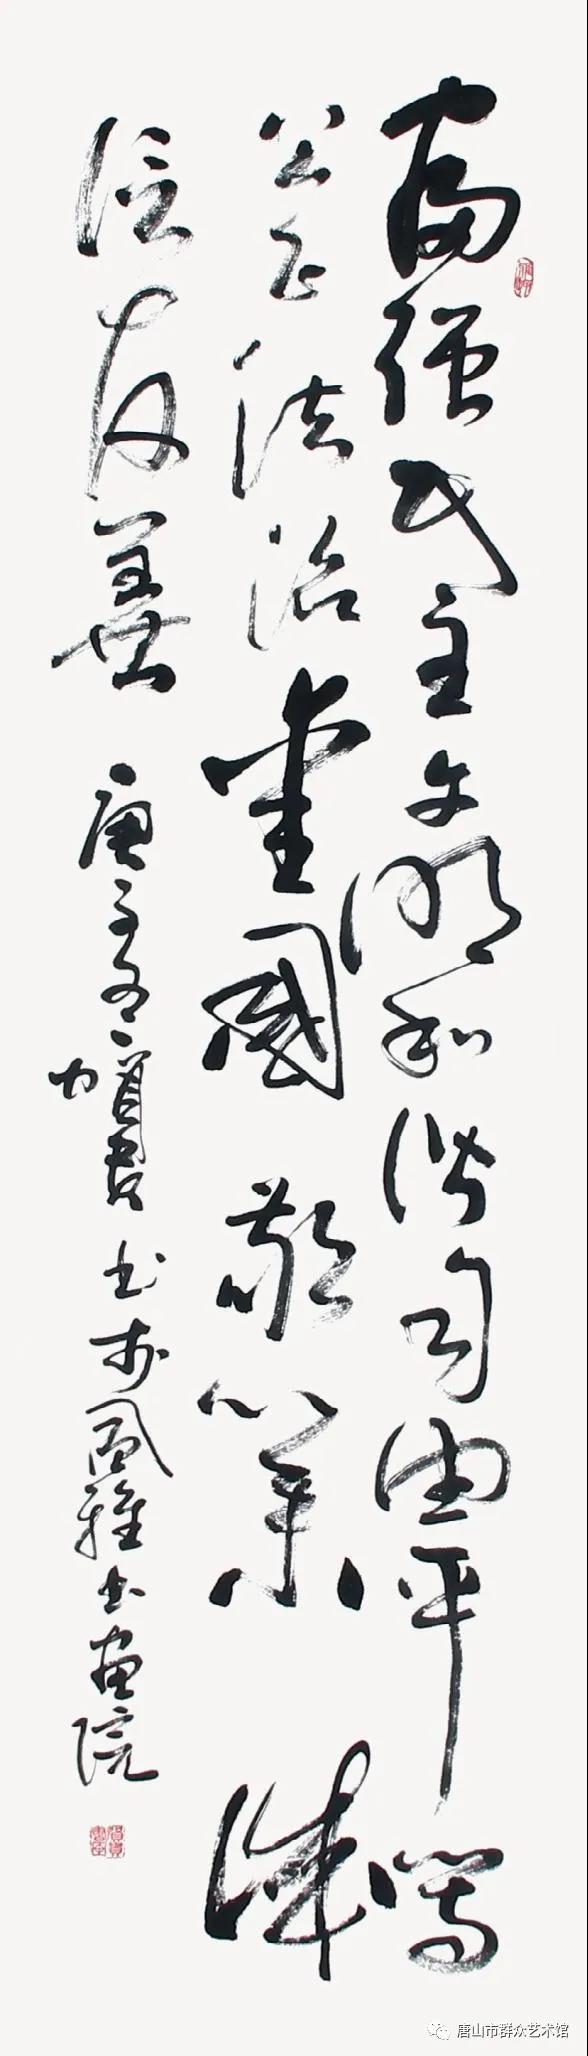 富强民主文明和谐自由平等
公正法治爱國敬业诚
信友善
庚子冬 书於风雅书画院
唐山市群众艺术馆